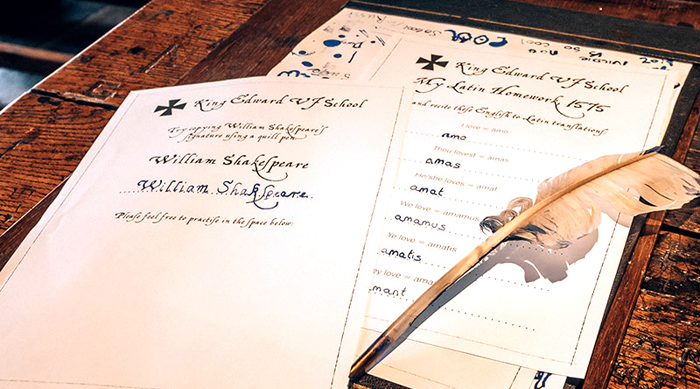 King Edward VI School
Try copying William Shakespeare's
signature using a quill pen
William Shakespeare
William Shakspeare
Please feel free to practise in the space below:
King Edward VI School
My Latin Homework 1575
and recite these English to Latin translations:
I love = amo
amo
Thou lovest = amas
amas
He/she loves = amat
amat
We love = amamus
amamus
Ye love = amatis
amatis
ey love = ama
mant